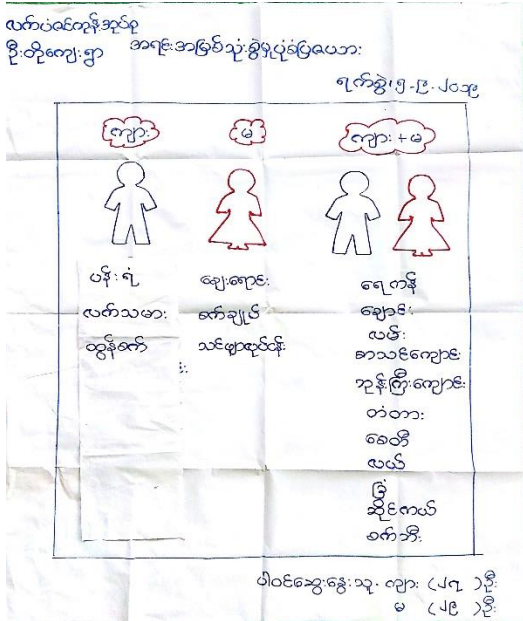 လက်ပံခင်ကုန်းအုပ်စု
ဦးတိုကျေးရွာ အရင်းအမြစ်သုံးစွဲမှုပုံစံပြဇယား
ရက်စွဲ၊ ၅.၉.၂၀၁၉
ကျား မ ကျား + မ
ပန်းရံ ဈေးရောင်း ရေကန်
လက်သမား စက်ချုပ် ချောင်း
ထွန်စက် သင်ဖျာလုပ်ငန်း လမ်း
စာသင်ကျောင်း
ဘုန်းကြီးကျောင်း
တံတား
စေတီ
လယ်
ခြံ
ဆိုင်ကယ်
စက်ဘီး
ပါဝင်ဆွေးနွေးသူ - ကျား (၂၇) ဦး
မ (၂၉) ဦး